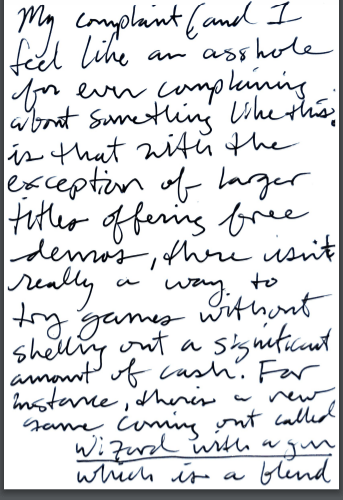 My complaint (and I
feel like an asshole
for even complaining
about something like this.
is that with the
exception of larger
titles offering free
demos, there isn't
really a way to
try games without
shelling out a significant
amount of cash. For
instance, there's a new
game coming out called
Wizard with a gun
which is a blend